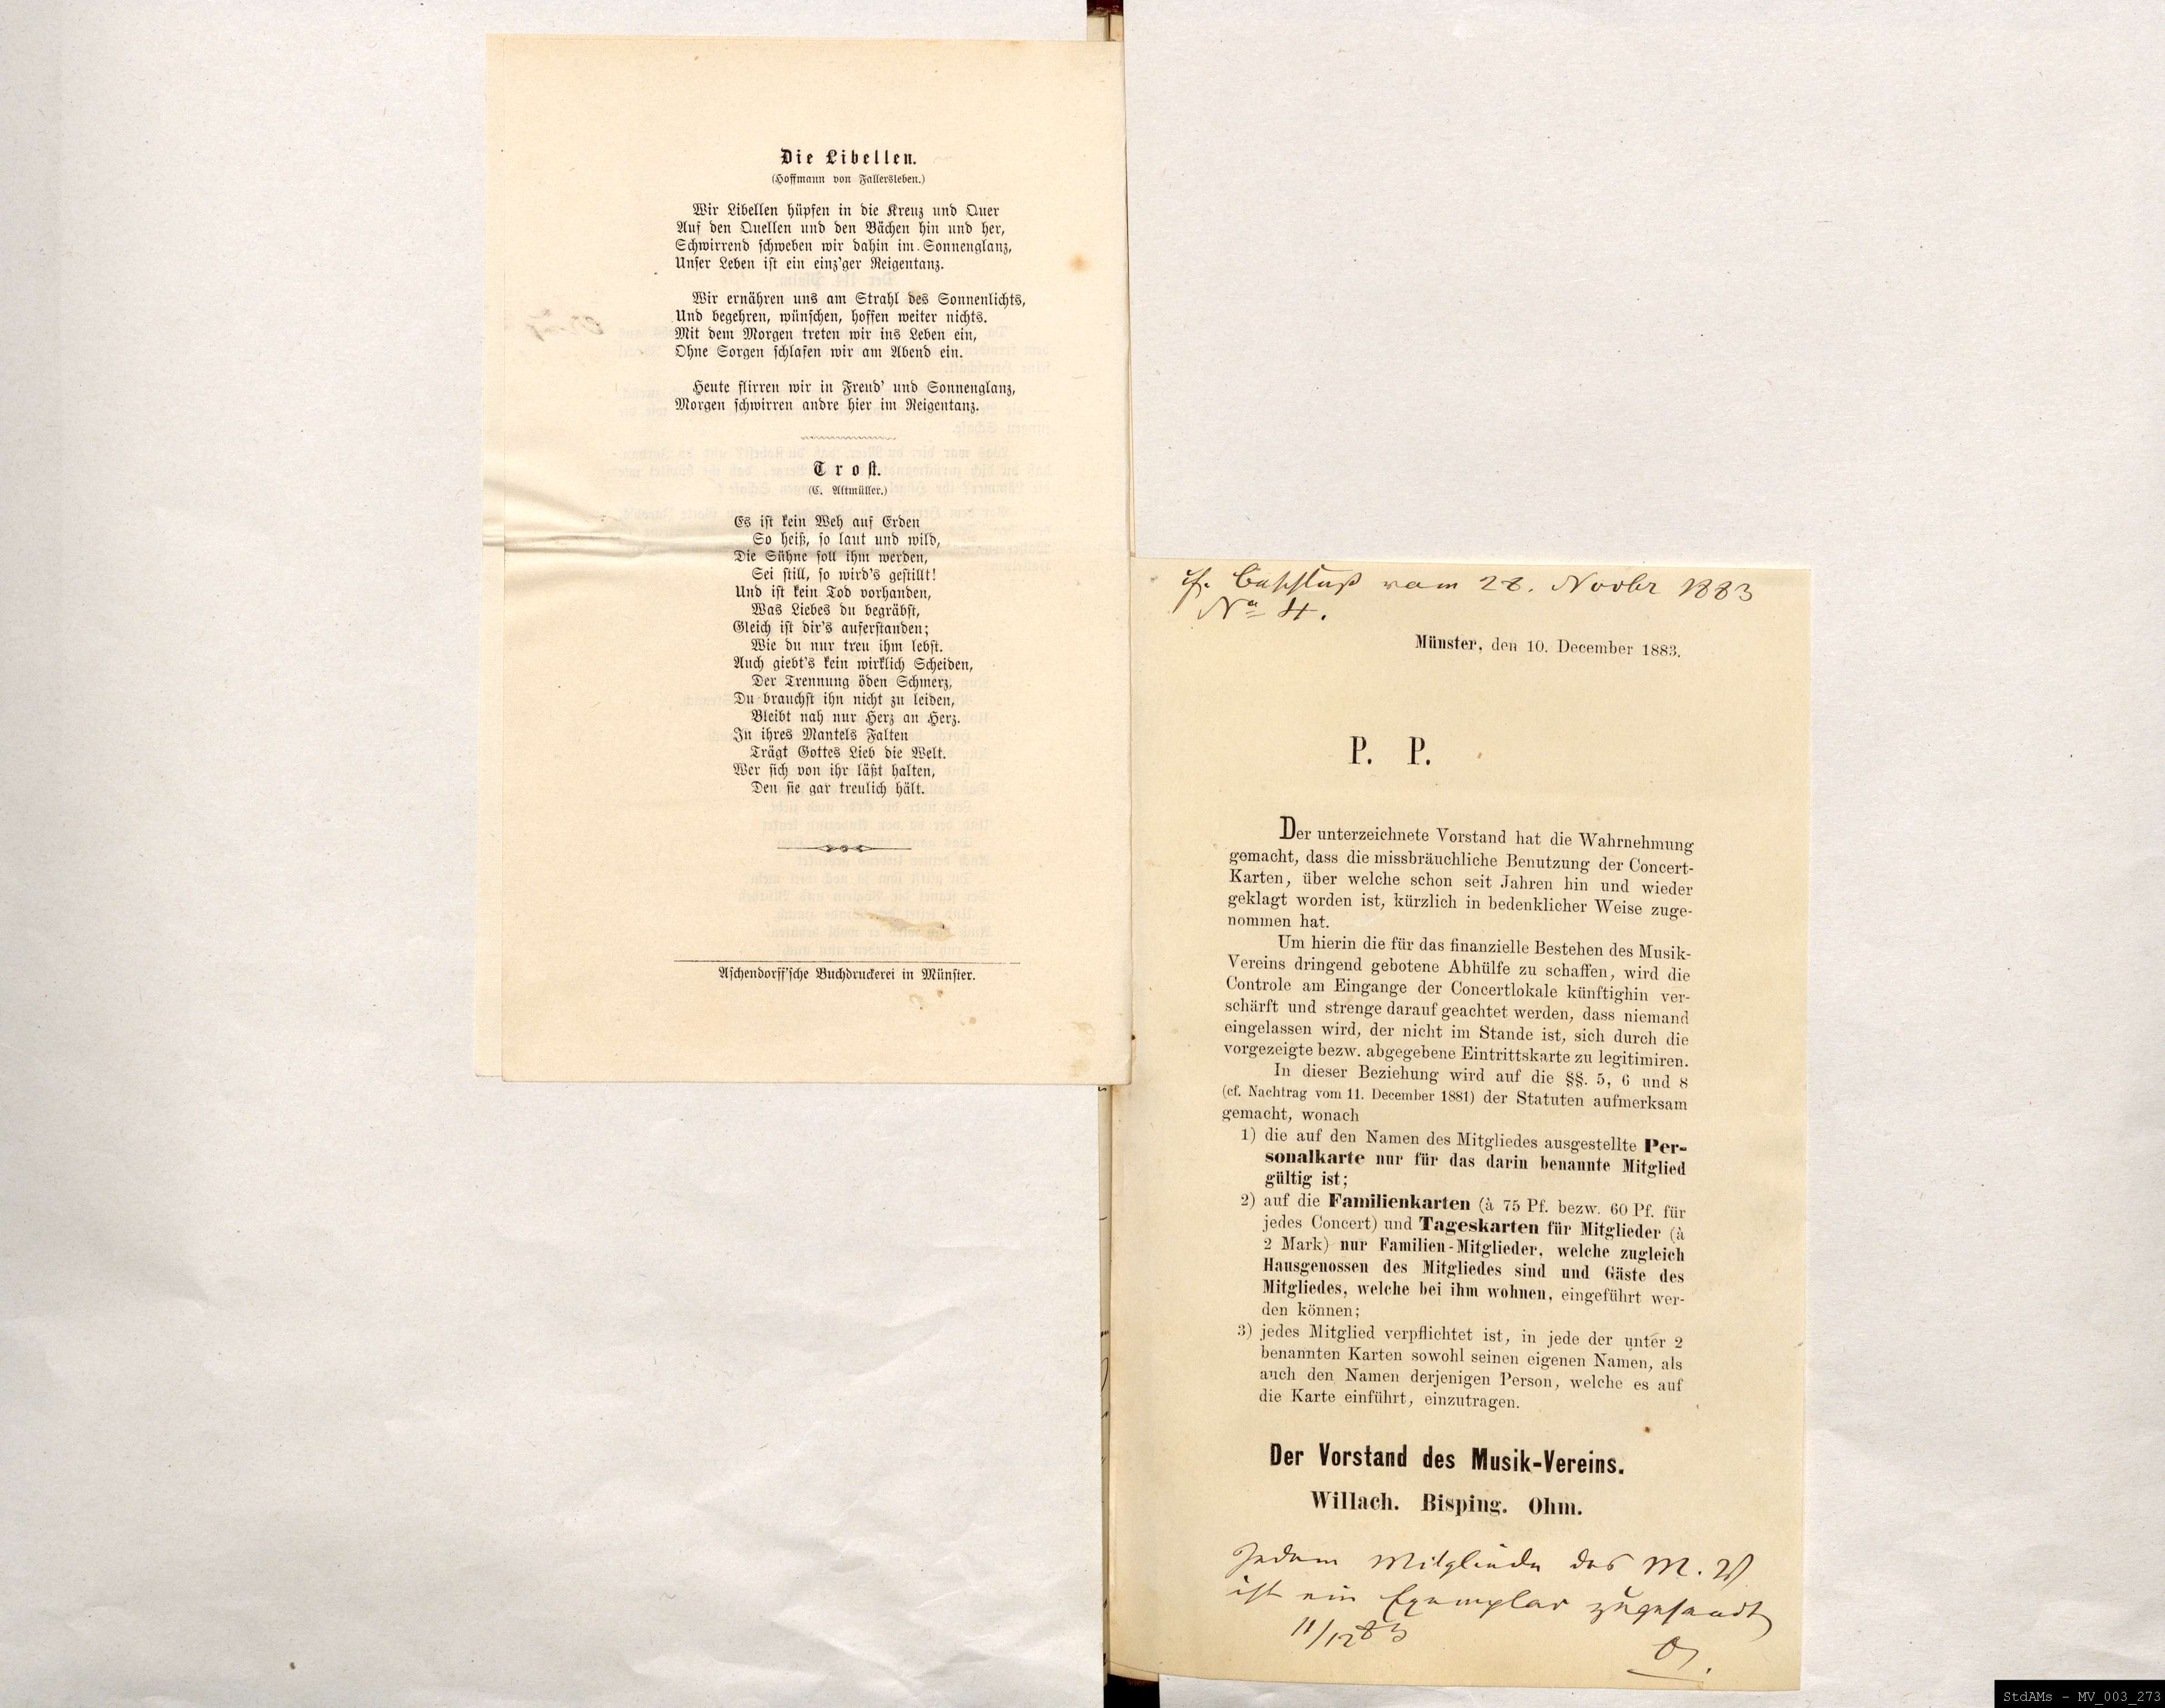 Die Libellen.
(Hoffmann von Fallersleben.)
Wir Libellen hüpfen in die Kreuz und Quer
Auf den Quellen und den Bächen hin und her,
Schwirrend schweben wir dahin im Sonnenglanz,
Unser Leben ist ein einz'ger Reigentanz.
Wir ernähren uns am Strahl des Sonnenlichts,
Und begehren, wünschen, hoffen weiter nichts.
Mit dem Morgen treten wir ins Leben ein,
Ohne Sorgen schlafen wir am Abend ein.
Heute flirren wir in Freud' und Sonnenglanz,
Morgen schwirren andre hier im Reigentanz.
Trost.
(C. Altmüller.)
Es ist kein Weh auf Erden
So heiß, so laut und wild,
Die Sühne soll ihm werden,
Sei still, so wird's gestillt!
Und ist kein Tod vorhanden,
Was Liebes du begräbst,
Gleich ist dir's auferstanden;
Wie du nur treu ihm lebst.
Auch giebt's kein wirklich Scheiden,
Der Trennung öden Schmerz,
Du brauchst ihn nicht zu leiden,
Bleibt nah nur Herz an Herz.
In ihres Mantels Falten
Trägt Gottes Lieb die Welt.
Wer sich von ihr läßt halten,
Den sie gar treulich hält.
Aschendorff'sche Buchdruckerei in Münster.
cf. Beschluß vom 28. Novbr 1883
No 4.
Münster, den 10. December 1883.
P. P.
Der unterzeichnete Vorstand hat die Wahrnehmung
gemacht, dass die missbräuchliche Benutzung der Concert-
Karten, über welche schon seit Jahren hin und wieder
geklagt worden ist, kürzlich in bedenklicher Weise zuge-
nommen hat.
Um hierin die für das finanzielle Bestehen des Musik-
Vereins dringend gebotene Abhülfe zu schaffen, wird die
Controle am Eingange der Concertlokale künftighin ver-
schärft und strenge darauf geachtet werden, dass niemand
eingelassen wird, der nicht im Stande ist, sich durch die
vorgezeigte bezw. abgegebene Eintrittskarte zu legitimiren.
In dieser Beziehung wird auf die §§. 5, 6 und 8
(cf. Nachtrag vom 11. December 1881) der Statuten aufmerksam
gemacht, wonach
1) die auf den Namen des Mitgliedes ausgestellte Per-
sonalkarte nur für das darin benannte Mitglied
gültig ist;
2) auf die Familienkarten (à 75 Pf. bezw. 60 Pf. für
jedes Concert) und Tageskarten für Mitglieder (à
2 Mark) nur Familien-Mitglieder, welche zugleich
Hausgenossen des Mitgliedes sind und Gäste des
Mitgliedes, welche bei ihm wohnen, eingeführt wer-
den können;
3) jedes Mitglied verpflichtet ist, in jede der unter 2
benannten Karten sowohl seinen eigenen Namen, als
auch den Namen derjenigen Person, welche es auf
die Karte einführt, einzutragen.
Der Vorstand des Musik-Vereins.
Willach. Bisping. Ohm.
Jedem Mitgliede des M. V
ist ein Exemplar zugesandt
11/12 83
StdAMs - MV_003_273